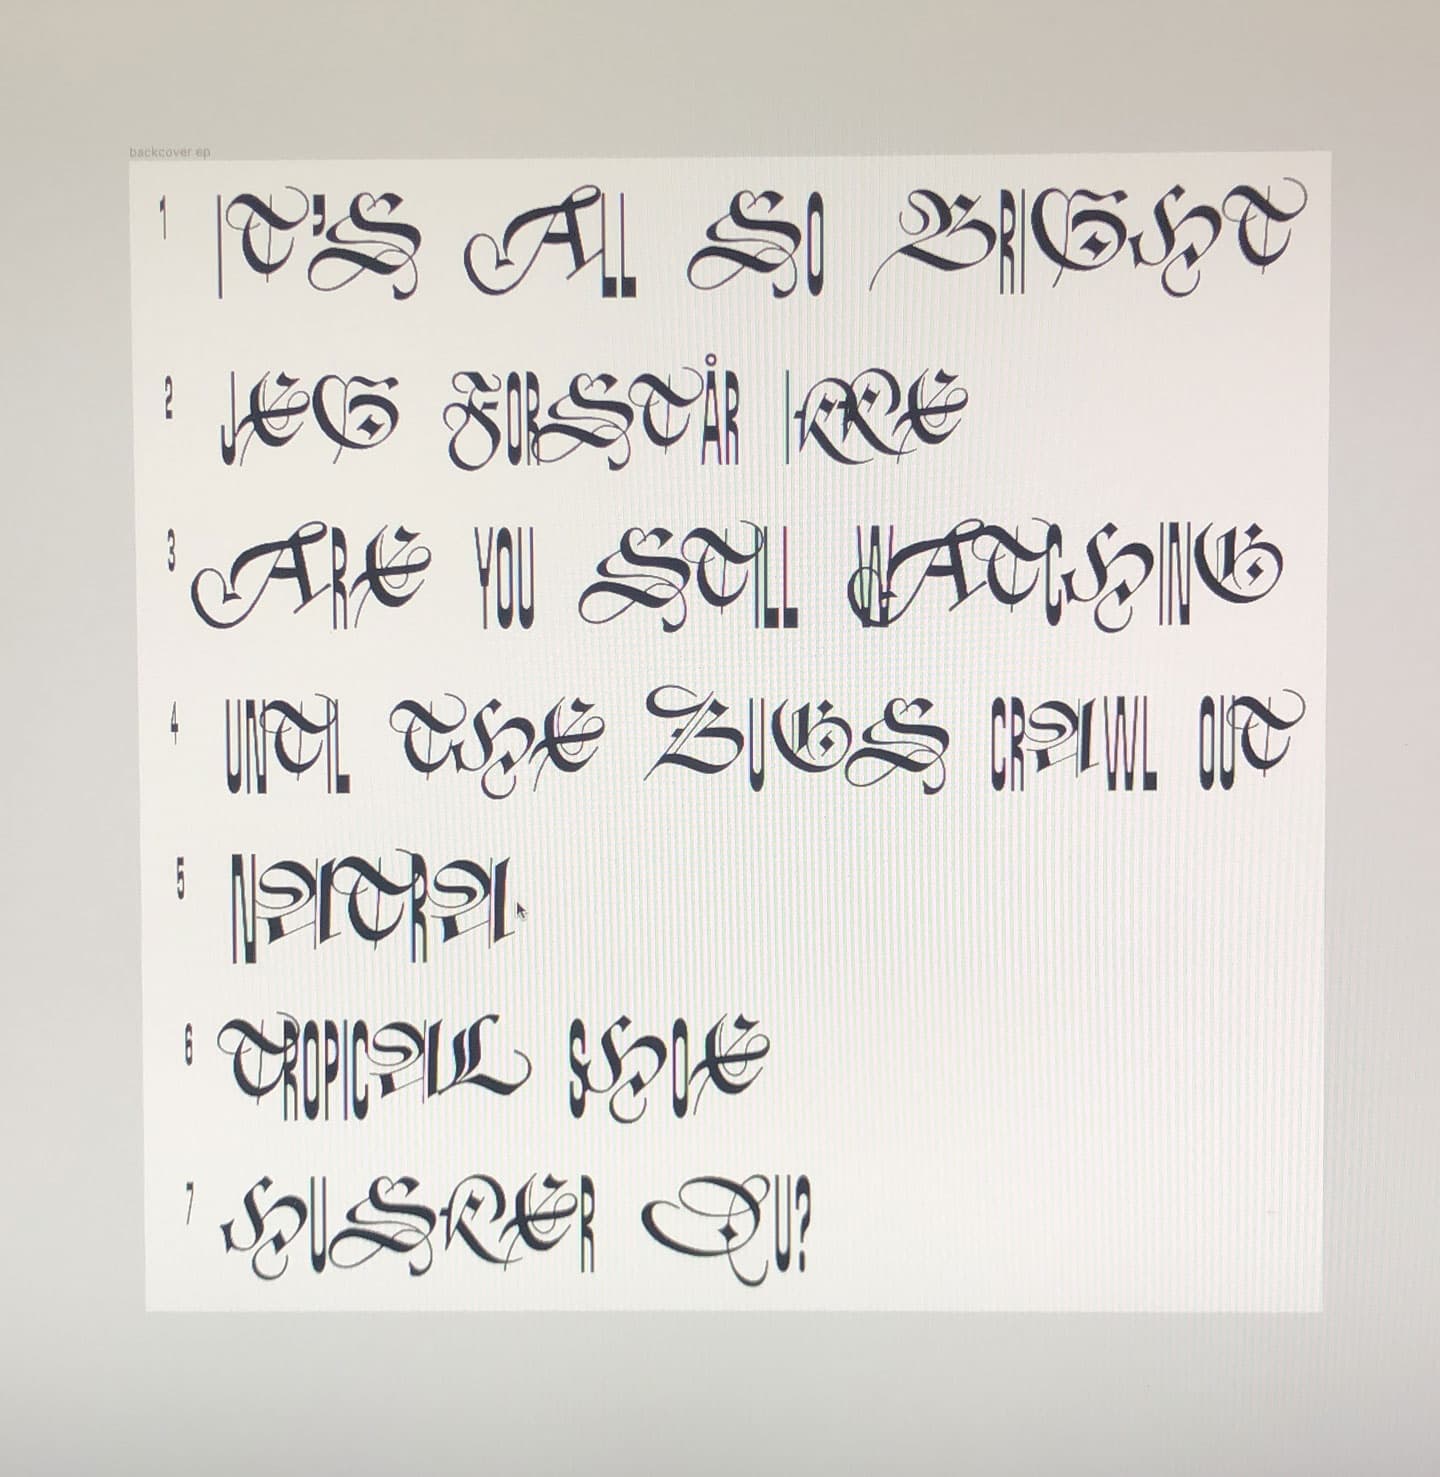 backcover ep
1 IT'S ALL SO BRIGHT
2 JEG FORSTÅR IKKE
3 ARE YOU STILL WATCHING
4 UNTIL THE BUGS CRAWL OUT
5 NATRA
6 TROPICAL SHOE
7 HUSKER DU?